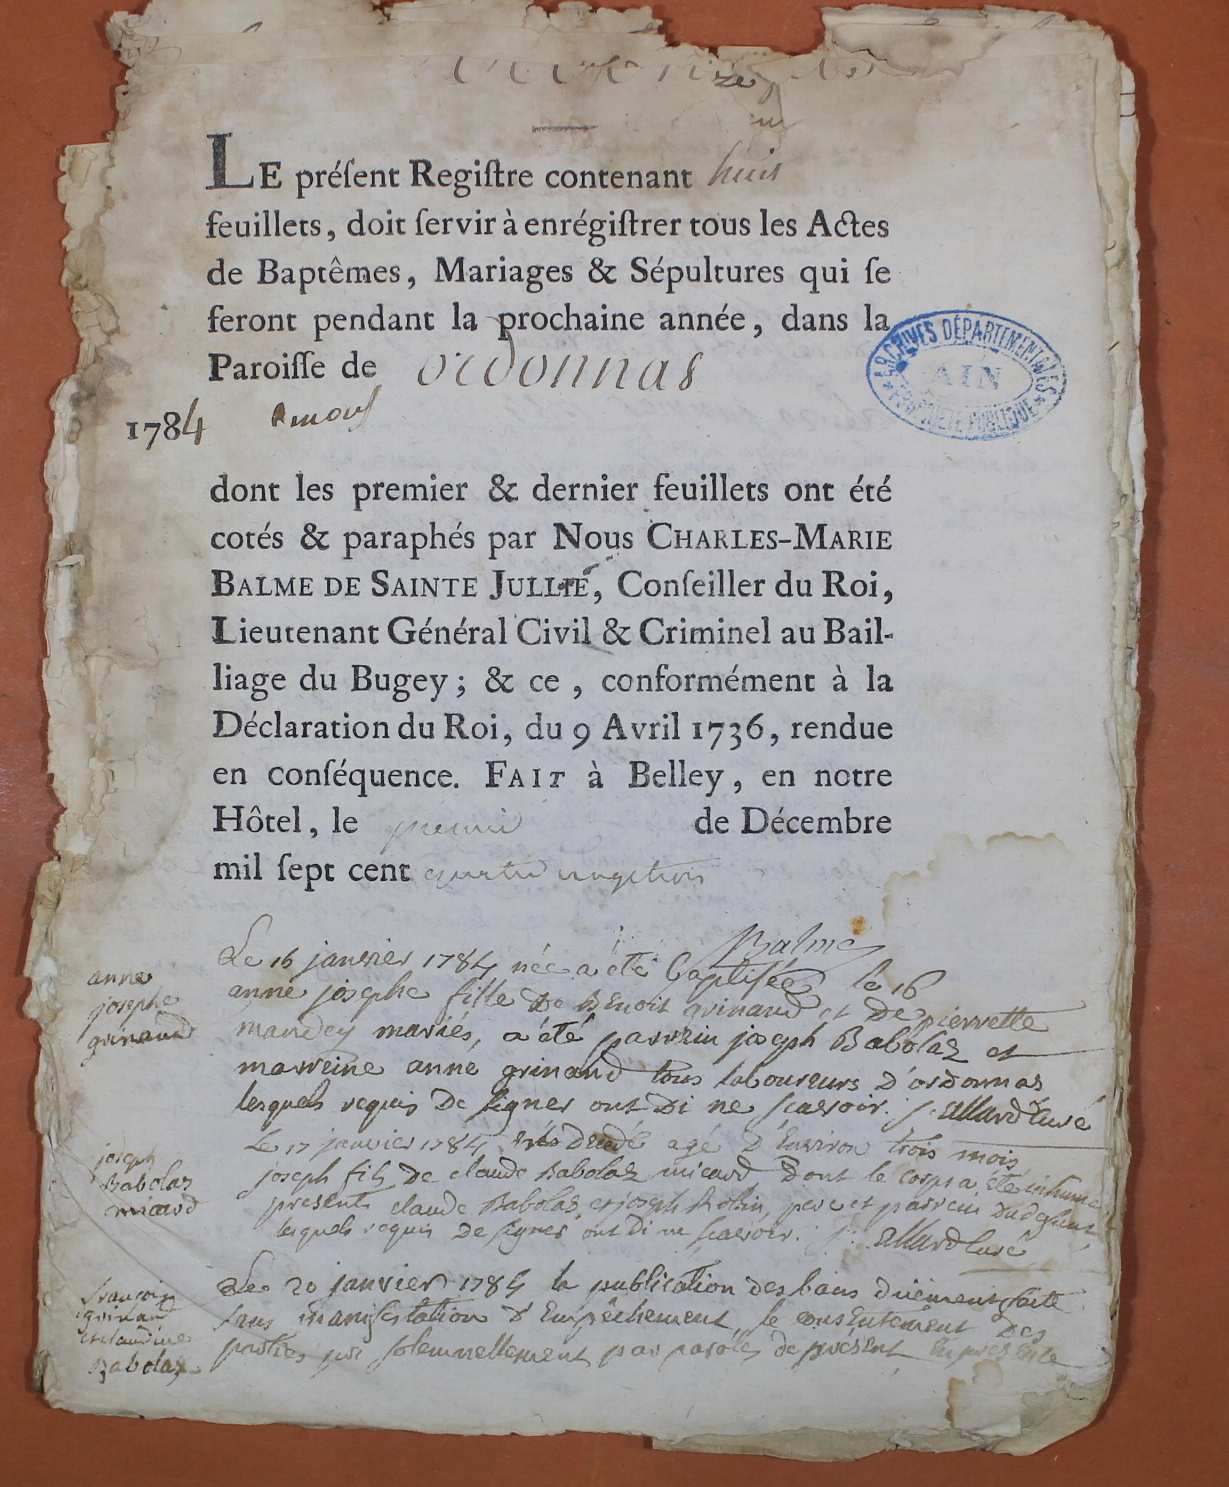 LE préſent Regiſtre contenant huit
feuillets, doit ſervir à enrégiſtrer tous les Actes
de Baptêmes, Mariages & Sépultures qui ſe
feront pendant la prochaine année, dans la
Paroiſſe de ordonnas
1784
ARCHIVES DÉPARTEMENTALES
AIN
PROPRIÉTÉ PUBLIQUE
dont les premier & dernier feuillets ont été
cotés & paraphés par Nous CHARLES-MARIE
BALME DE SAINTE JULLIE, Conſeiller du Roi,
Lieutenant Général Civil & Criminel au Bail-
liage du Bugey ; & ce , conformément à la
Déclaration du Roi, du 9 Avril 1736, rendue
en conſéquence. FAIT à Belley, en notre
Hôtel, le premier de Décembre
mil ſept cent quatre vingt trois
Balme
anne
josephe
grinand
Le 16 janvier 1784 née a été Baptisée le 16
anne josephe fille De Benoit grinand et De pierrette
mariés, a été parrein joseph Babolaz et
marreine anne grinand tous laboureurs D'ordonnas
lesquels requis De signer ont Di ne sçavoir. j. allard Curé
joseph
Babolaz
micard
Le 17 janvier 1784 est Decedé agé D'Environ trois mois
joseph fils De claude Babolaz micard Dont le corps a été inhumé
presents claude Babolaz et joseph Robin, pere et parrein Du defunt
lesquels requis De signer ont Di ne sçavoir. j. allard curé
françois
grinand
et claudine
Babolaz
Le 20 janvier 1784 la publication des bans düement faite
sans manifestation D'Empêchement, le consentement Des
parties pris solemnellement par paroles de présent En presence